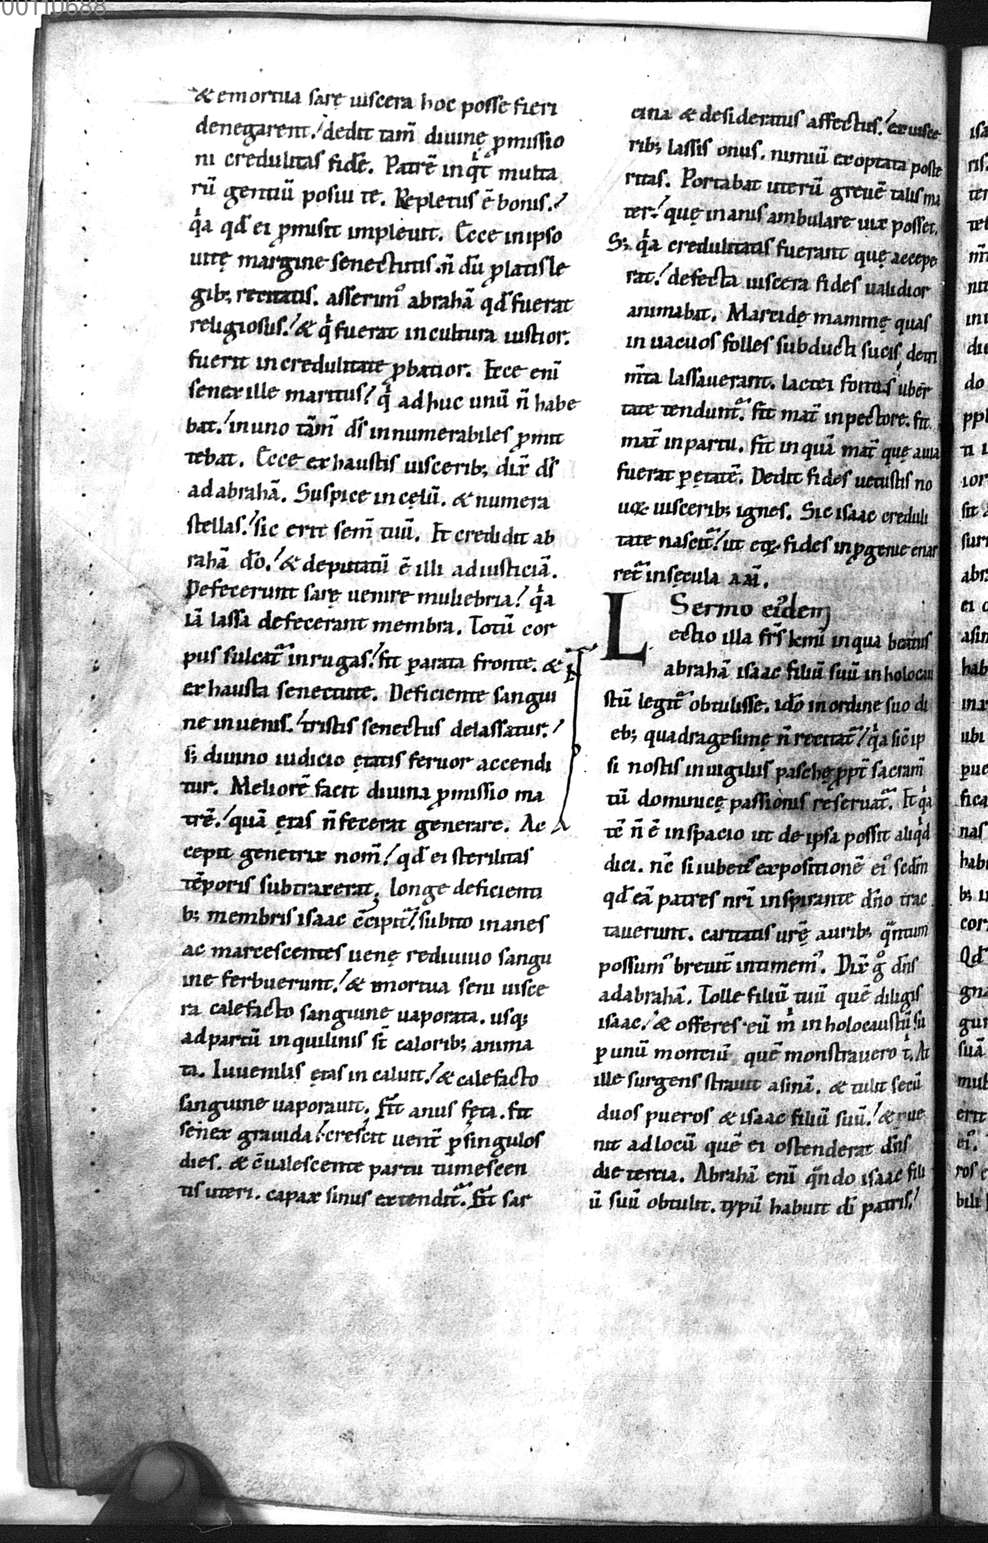 00110688
& emortua sarę uiscera hoc posse fieri
denegarent. dedit tam̄ diuinę p̄missio
ni credulitas fidē. Patrē inq̇t multa
rū gentiū posui te. Repletus ē bonis.
q̇a qd̄ ei p̄misit impleuit. Ecce in ipso
uitę margine senectutis. n̄ dū p̄latis le
gib; recitatis. asserim᾽ abrahā qd̄ fuerat
religiosus. & q̇ fuerat in cultura iustior.
fuerit in credulitate p̄batior. Ecce enī
senex ille maritus. q̇ adhuc unū n̄ habe
bat. in uno tam̄ ds̄ innumerabiles p̄mit
tebat. Ecce exhaustis uiscerib; dix̄ ds̄
ad abrahā. Suspice in cęlū. & numera
stellas. sic erit sem̄ tuū. Et credidit ab
rahā dō. & deputatū ē illi ad iusticiā.
Defecerunt sarę uenire muliebria. q̇a
iā lassa defecerant membra. Totū cor
pus sulcat᷑ in rugas. fit parata fronte. &
exhausta senectute. Deficiente sangui
ne in uenis. tristis senectus delassatur.
s; diuino iudicio ętatis feruor accendi
tur. Meliorē facit diuina p̄missio ma
trē. quā ętas n̄ fecerat generare. Ac
cepit genetrix nom̄. qd̄ ei sterilitas
tēporis subtraxerat. longe deficienti
b; membris isaac c̄cipit᷑. subito inanes
ac marcescentes uenę rediuiuo sangu
ine ferbuerunt. & emortua seni uisce
ra calefacto sanguine uaporata. usq;
ad partū inquilinis st̄ calorib; anima
ta. Iuuenilis ętas incaluit. & calefacto
sanguine uaporauit. Fit anus fęta. fit
senex grauida. crescit uent̄ p̄ singulos
dies. & c̄ualescente partu tumescen
tis uteri. capax sinus extendit᷑. Fit sar
cina & desideratus affectus. ex uisce
rib; lassis onus. nimiū exoptata poste
ritas. Portabat uterū greuē talis ma
ter. quę in anis ambulare uix posset.
S; q̇a credulitatis fuerant quę accepe
rat. defecta uiscera fides ualidior
animabat. Marcidę mammę quas
in uacuos folles subducti sucis detri
m̄ta lassauerant. lactei fontis uber
tate tendunt᷑. fit mat̄ in pectore. fit
mat̄ in partu. fit in quā mat̄ quę auia
fuerat p ętatē. Dedit fides uetustis no
uosq; uiscerib; ignes. Sic isaac creduli
tate nascit᷑. ut fides in p̄genie enar
ret᷑ in sęcula
Sermo eiusdem
Lectio illa frs̄ kmī in qua beatus
abrahā isaac filiū suū in holocau
stū legit᷑ obtulisse. idō in ordine suo di
eb; quadragesimę n̄ recitat᷑. q̇a sic̄ ip
si nostis in uigiliis paschę ppt̄ sacram̄
tū dominicę passionis reseruat᷑. Et q̇a
tē n̄ ē in spacio ut de ipsa possit aliq̇d
dici. nc̄ si iubetis expositionē ei᾽ sedm̄
qd̄ eā patres nr̄i inspirante dn̄o trac
tauerunt. caritatis urę aurib; q̄ntum
possum᾽ breuit̄ intimem᾽. Dix̄ g̊ dn̄s
ad abrahā. Tolle filiū tuū quē diligis
isaac. & offeres eū m̊ in holocaustū su
p unū montiū quē monstrauero t̊. At
ille surgens strauit asinā. & tulit secū
duos pueros & isaac filiū suū. & pue
nit ad locū quē ei ostenderat dn̄s
die tercia. Abrahā enī q̄ndo isaac fili
ū suū obtulit. typū habuit di̅ patris.